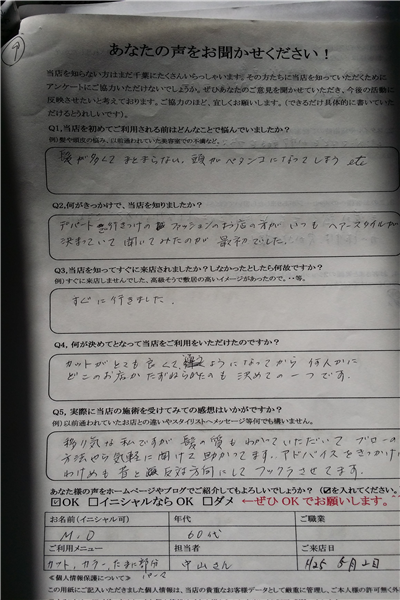 9
あなたの声をお聞かせください！
当店を知らない方はまだ千葉にたくさんいらっしゃいます。その方たちに当店を知っていただくために、
アンケートにご協力いただけないでしょうか。ぜひあなたのご意見を聞かせていただき、今後の活動に
反映させたいと考えております。ご協力のほど、宜しくお願いします。（できるだけ具体的に書いていた
だけるとうれしいです）。
Q1,当店を初めてご利用される前はどんなことで悩んでいましたか？
例）髪や頭皮の悩み、以前通われていた美容室での不満など。
髪が多くて まとまらない，頭がペタンコになってしまう etc
Q2,何がきっかけで、当店を知りましたか？
デパート 行きつけの ファッションのお店の方が いつも ヘアースタイルが
決まっていて 聞いてみたのが 最初でした。
Q3,当店を知ってすぐに来店されましたか？しなかったとしたら何故ですか？
例）すぐに来店しませんでした、高級そうで敷居の高いイメージがあったので。・・等。
すぐに行きました．
Q4, 何が決めてとなって当店をご利用をいただけたのですか？
カットがとても良くて ようになってから 何人かに
どこのお店かたずねられたのも 決めての一つです．
Q5, 実際に当店の施術を受けてみての感想はいかがですか？
例）以前通われていたお店との違いやスタイリストへメッセージ等何でも構いません。
移り気な私ですが 髪の質も わかっていただいて ブローの
方法やら気軽に聞けて 助かってます．アドバイスをきっかけ
わけめも 昔と 反対方向にして フックラさせてます．
あなた様の声をホームページやブログでご紹介してもよろしいでしょうか？（☑を入れてください。
☑OK □イニシャルなら OK □ダメ ←ぜひ OK でお願いします。
お名前(イニシャル可) 年代 ご職業
M.O 60代
ご利用メニュー 担当者 ご来店日
カット，カラー，たまに部分パーマ 中山さん H25 5月2日
≪個人情報保護について≫
この用紙にご記入いただきました個人情報は、当店の貴重なお客様データとして厳重に管理し、ご本人様の許可無く外